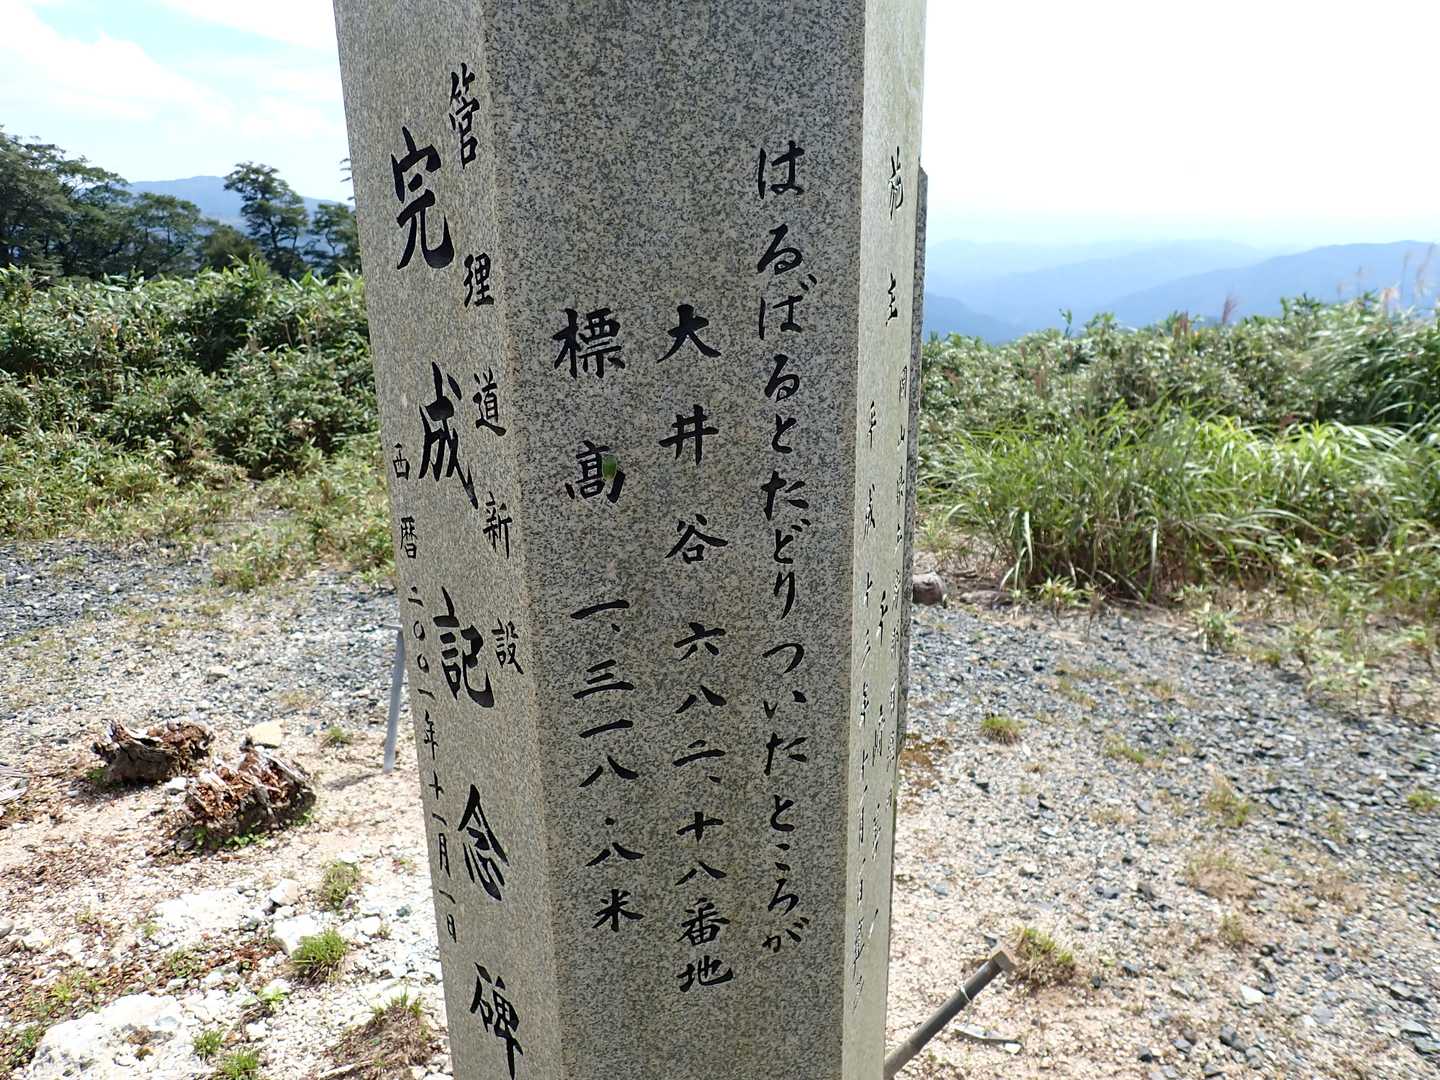 はるばるとたどりついたところが
大井谷六八二、十八番地
標高一、三一八・八米
管理道新設
完成記念碑
西暦二〇〇一年十一月一日
施主
平成十三年十一月一日